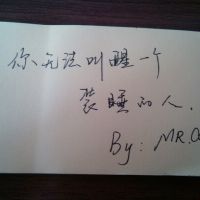 你无法叫醒一个
装睡的人.
By: MR.